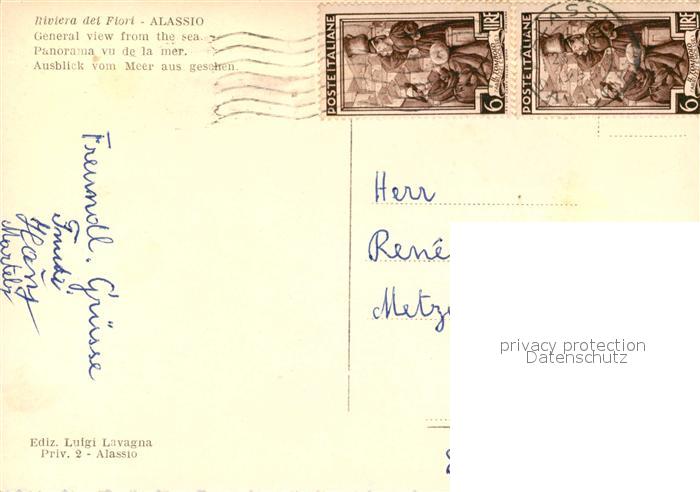 Riviera dei Fiori - ALASSIO
General view from the sea.
Panorama vu de la mer.
Ausblick vom Meer aus gesehen.
POSTE ITALIANE
LIRE
6
POSTE ITALIANE
LIRE
6
Freundl. Grüsse
Hans
Herr
René
Metzg
privacy protection
Datenschutz
Ediz. Luigi Lavagna
Priv. 2 - Alassio